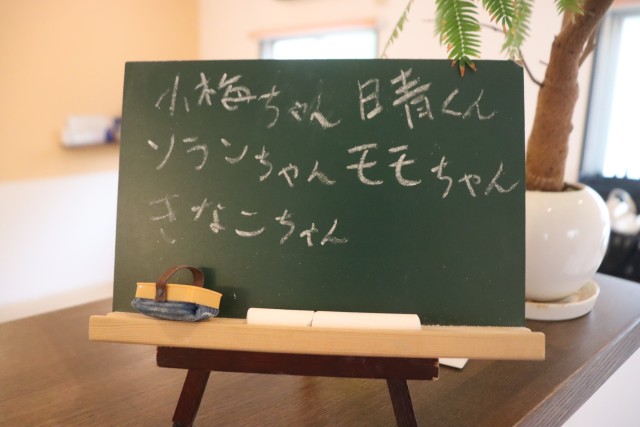 小梅ちゃん 日青くん
ソランちゃん モモちゃん
きなこちゃん